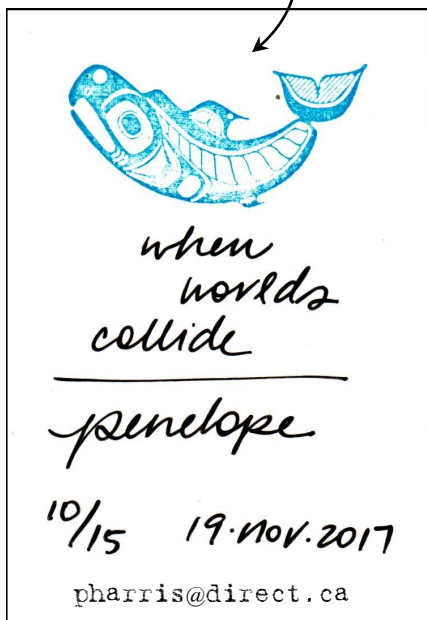 when
worlds
collide
penelope
10/15 19.nov.2017
pharris@direct.ca